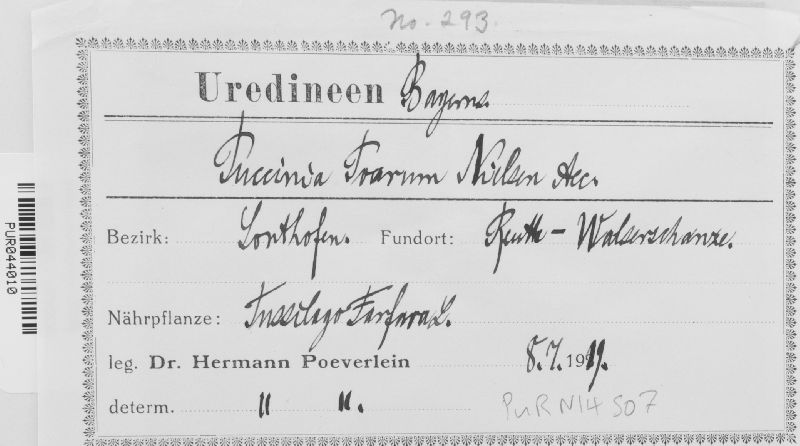 No. 293.
Uredineen Bayerns.
Puccinia Poarum Nielsen Aec.
Bezirk: Sonthofen. Fundort: Reuth - Walserschanze.
Nährpflanze: Tussilago Farfara L.
leg. Dr. Hermann Poeverlein 8.7.1919.
determ. " ".
PUR N14507
PUR044010